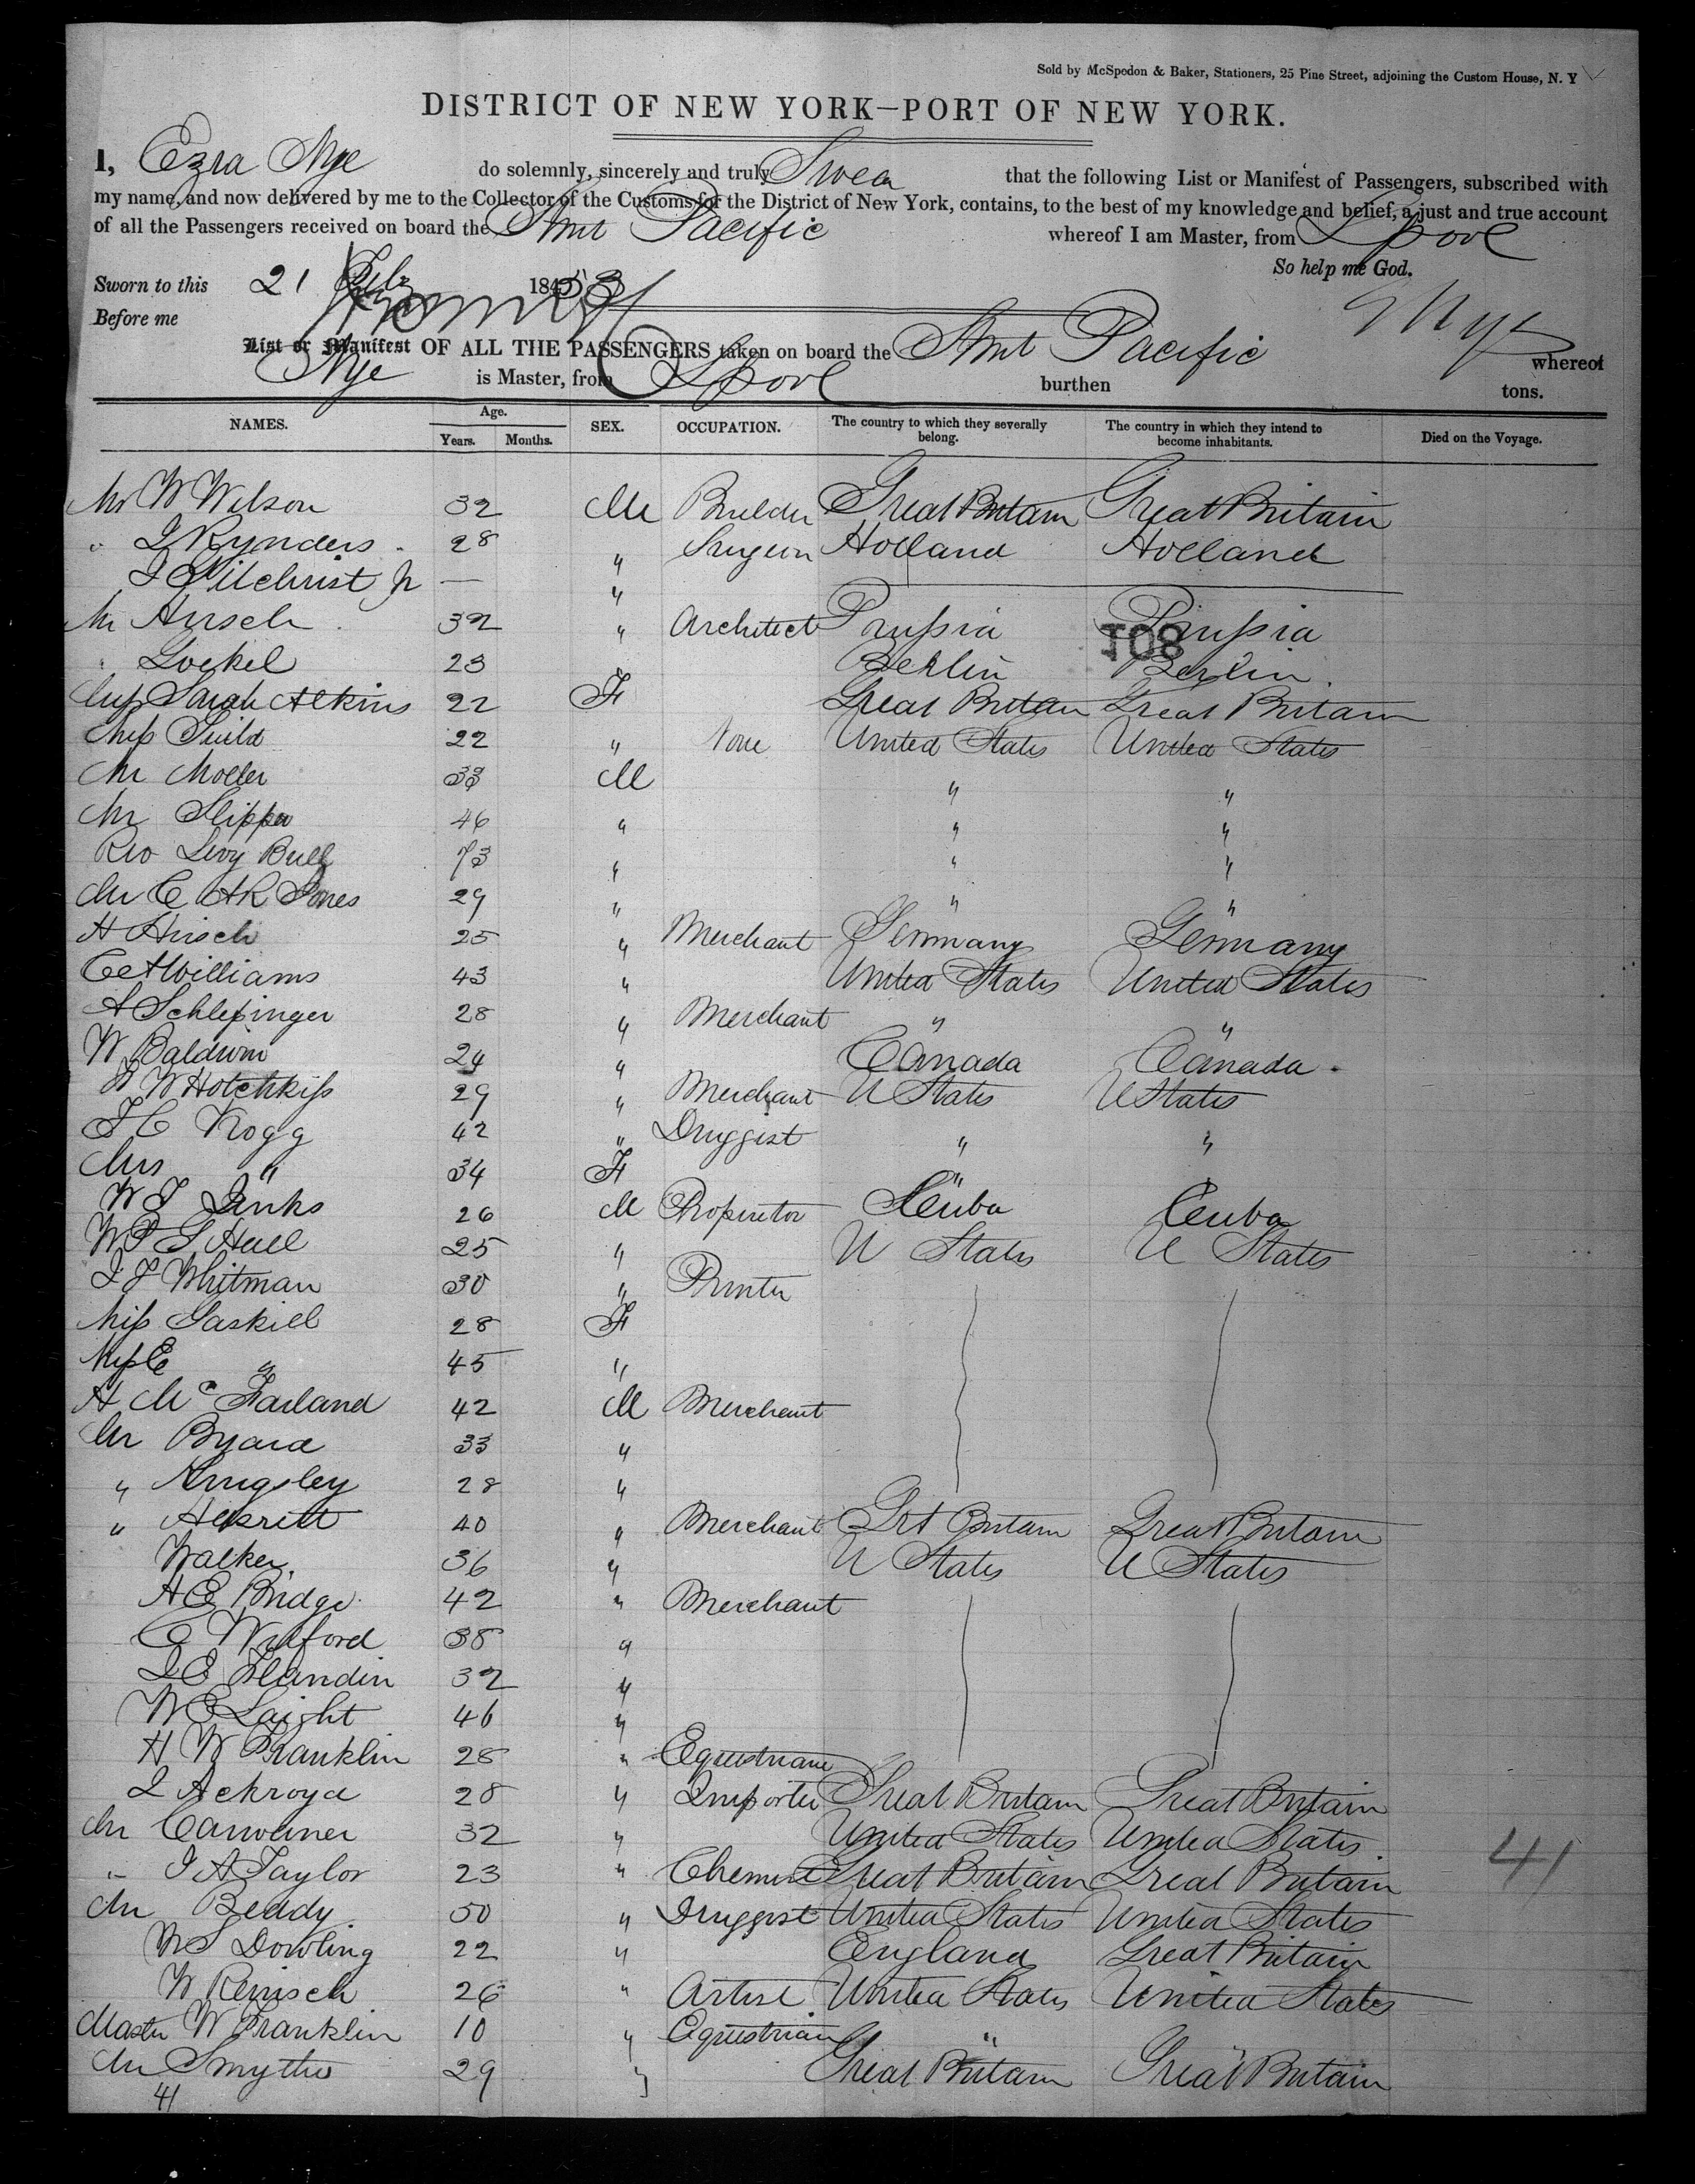 Sold by McSpedon & Baker, Stationers, 25 Pine Street, adjoining the Custom House, N. Y
DISTRICT OF NEW YORK—PORT OF NEW YORK.
I, Ezra Nye do solemnly, sincerely and truly Swear that the following List or Manifest of Passengers, subscribed with
my name, and now delivered by me to the Collector of the Customs for the District of New York, contains, to the best of my knowledge and belief, a just and true account
of all the Passengers received on board the Stmr Pacific whereof I am Master, from Lpool
So help me God.
Sworn to this 21 Feb 1853
Before me
E Nye
List or Manifest OF ALL THE PASSENGERS taken on board the Stmr Pacific whereof
Nye is Master, from Lpool burthen tons.
NAMES. Age. Years. Months. SEX. OCCUPATION. The country to which they severally belong. The country in which they intend to become inhabitants. Died on the Voyage.
Mr W Wilson 32 M Builder Great Britain Great Britain
" I Rynders 28 " Surgeon Holland Holland
J Gilchrist Jr — "
Mr Hirsch 32 " Architect Prussia Prussia
108
" Loekel 23 Berlin Berlin
Miss Sarah Atkins 22 F Great Britain Great Britain
Miss Guild 22 " None United States United States
Mr Moller 33 M " "
Mr Slipper 46 " " "
Rev Levy Bull 73 " " "
Mr C AR Jones 29 " " "
H Hirsch 25 " Merchant Germany Germany
C A Williams 43 " United States United States
A Schlesinger 28 " Merchant " "
W Baldwin 24 " Canada Canada
W Hotchkiss 29 " Merchant U States U States
42 " Druggist " "
Mrs " 34 F " "
W J Jenks 26 M Proprietor Cuba Cuba
W P G Hall 25 " U States U States
J F Whitman 30 " Printer
Miss Gaskill 28 F
Miss E " 45 "
H McFarland 42 M Merchant
Mr Byard 33 "
" Kingsley 28 "
" 40 " Merchant Grt Britain Great Britain
Walker 36 " U States U States
H E Bridge 42 " Merchant
C Wilford 38 "
J E Flandin 32 "
W E Laight 46 "
H W Franklin 28 " Equestrian
I Ackroyd 28 " Importer Great Britain Great Britain
Mr 32 " United States United States
" J A Taylor 23 " Chemist Great Britain Great Britain
41
Mr Beddy 50 " Druggist United States United States
W S Dowling 22 " England Great Britain
W 26 " Artist United States United States
Master W Franklin 10 " Equestrian " "
Mr Smythe 29 " Great Britain Great Britain
41